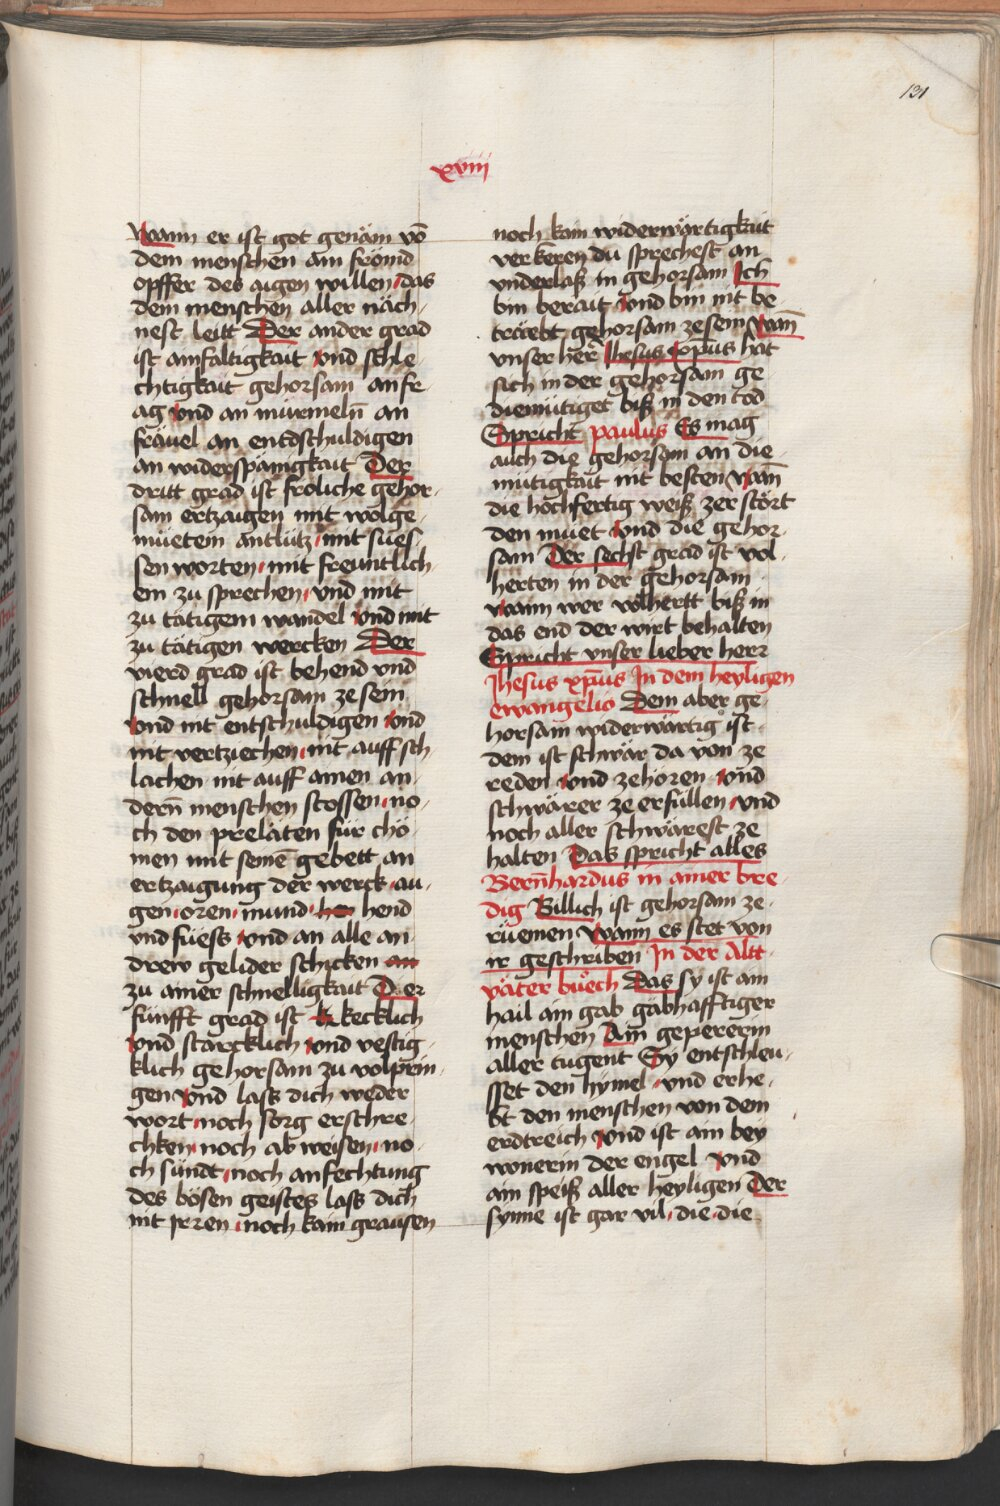 131
xviij
Wann er ist got genäm vō
dem menschen am frömd
opffer des aigen willen das
dem menschen aller näch
nest leitt Der ander grad
ist ainfaltigkait und schle
chtigkait gehorsam an fr
ag und an murmeln̄ an
fräuel an entschuldigen
an widerspänigkait Der
dritt grad ist froliche gehor
sam ertzaigen mit wolge
müetem antlütz mit sues
sen worten mit freuntlich
em zu sprechen und mit
zu tätigem wandel und mit
zu tätigen wercken Der
vierd grad ist behend und
schnell gehorsam ze sein
und nit entschuldigen und
nit vertziechen nit auff sch
lachen nit auff ainen an
dern̄ menschen stossen no
ch den prelaten für chö
men mit seinē gebett an
ertzaigung der werck au
gen oren mund hend
und füess und an alle an
drew gelider schicken
zu ainer schnelligkait Der
fünfft grad ist kecklich
und starcklich und vestig
klich gehorsam zu volprin
gen und lass dich weder
wort noch sorg erschre
chken noch ab weisen no
ch sündt noch anfechtung
des bösen geistes lass dich
nit irren noch kain grausen
noch kain widerwärtigkait
verkeren du sprechest an
underlaß in gehorsam Ich
bin berait und bin nit be
trüebt gehorsam ze sein wan̄
unser herr Jhesus xp̄us hat
sich in der gehorsam ge
diemütiget biß in den tod
Spricht paulus Es mag
auch die gehorsam an die
mütigkait nit besten wan̄
die hochfertig weiß zerstört
den muet und die gehor
sam Der sechst grad ist vol
herten in der gehorsam
wann wer volhertt biß in
das end der wirt behalten
Spricht unser lieber herr
Jhesus xp̄us In dem heyligen
ewangelio Dem aber ge
horsam widerwärtig ist
dem ist schwär da von ze
reden und ze hören und
schwärer ze erfüllen und
noch aller schwärest ze
halten Das spricht alles
Bern̄hardus in ainer bre
dig Billich ist gehorsam ze
rüemen wann es stet von
ir geschriben In der Altt
väter büech Das sy ist ain
hail ain gab gäbhafftiger
menschen Ain gepererin
aller tugent Sy entschleu
sset den hymel und erhe
bt den menschen von dem
erdtreich und ist ain bey
wonerin der engel und
ain speiß aller heyligen Der
synne ist gar vil die die